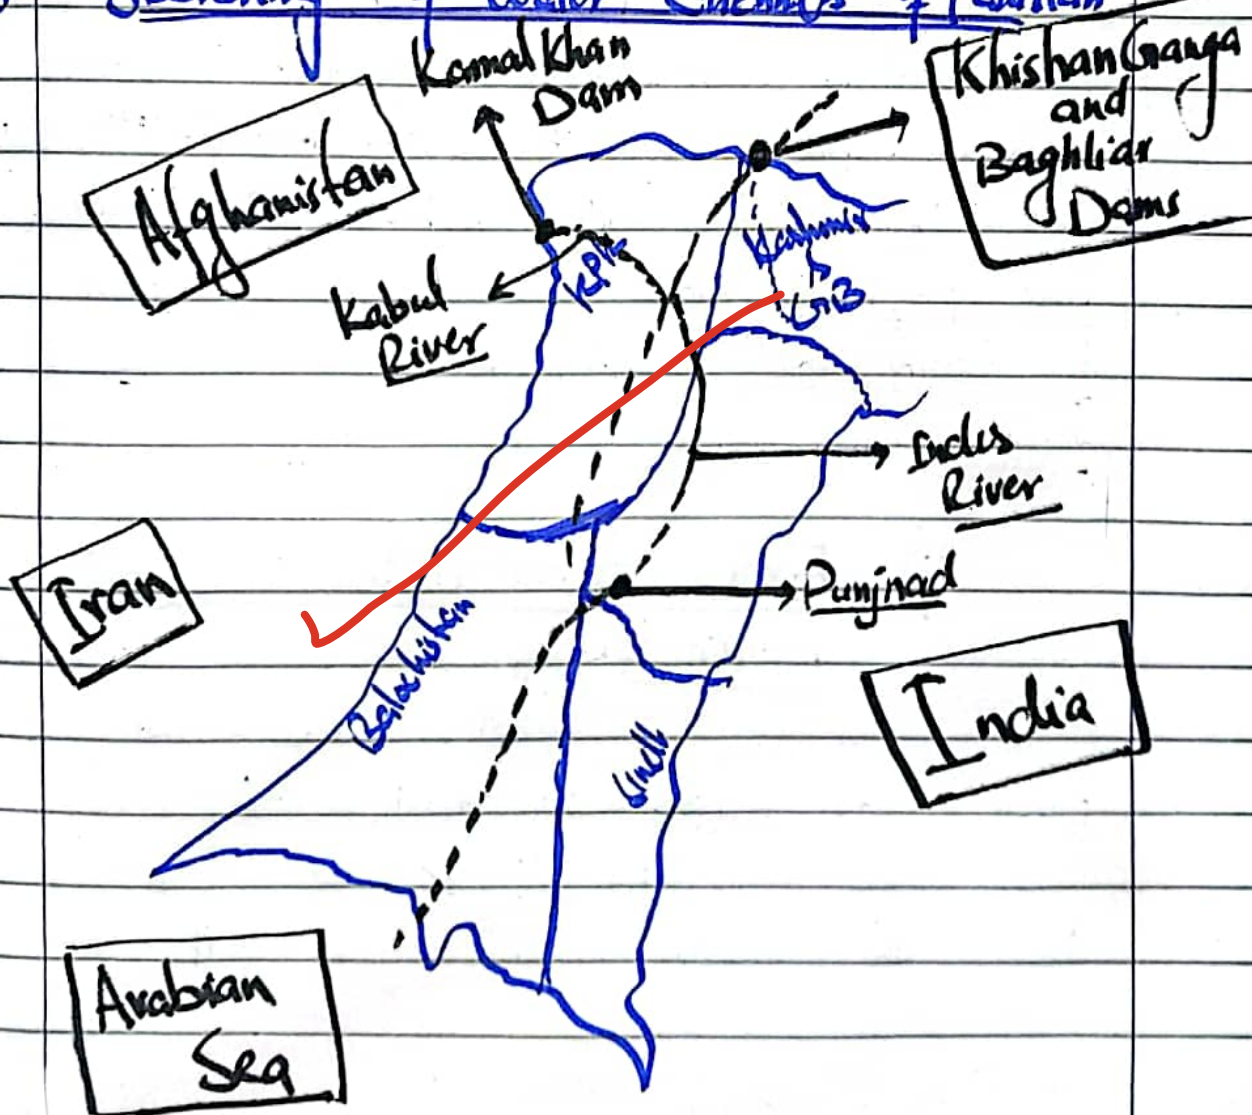 Kamal Khan
Dam
Khishan Ganga
and
Baghliar
Dams
Afghanistan
KPK
Kashmir
GB
Kabul
River
Indus
River
Iran
Punjnad
Balochistan
India
Sindh
Arabian
Sea